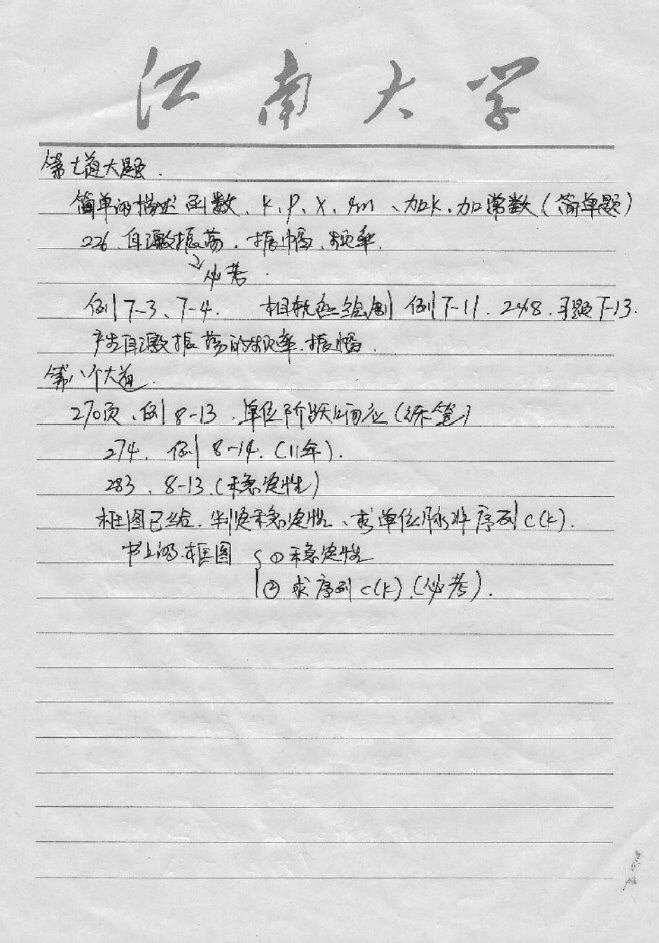 江南大学
第七道大题.
简单的描述函数. k, P, X, 4m、加k、加常数(简单题)
226 自激振荡. 振幅, 频率.
必考.
例7-3、7-4. 相轨迹绘制 例7-11. 248. 习题7-13.
产生自激振荡的频率.振幅.
第八个大道.
270页、例8-13.单位阶跃响应(
274. 例8-14.(11年).
283、8-13.(稳定性)
框图已给.判定稳定性、求单位脉冲序列c(k).
书上的框图 { ①稳定性
②求序列c(k).(必考).